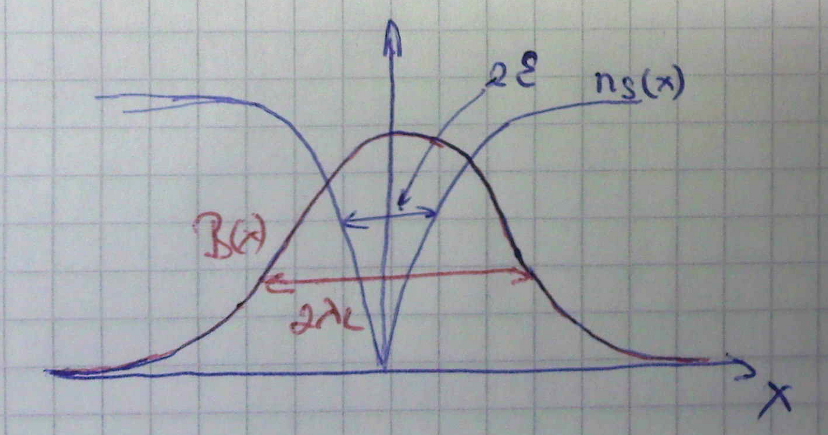 2ε
ns(x)
B(x)
2λL
x